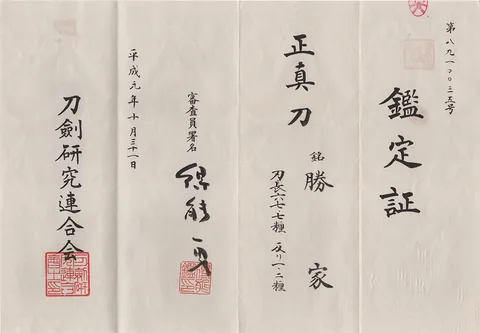 第八九一〇〇三五号
鑑定証
正真刀
銘 勝家
刃長六七・七糎 反り一・二糎
審査員署名
得能一男
平成元年十月三十一日
刀劍研究連合会